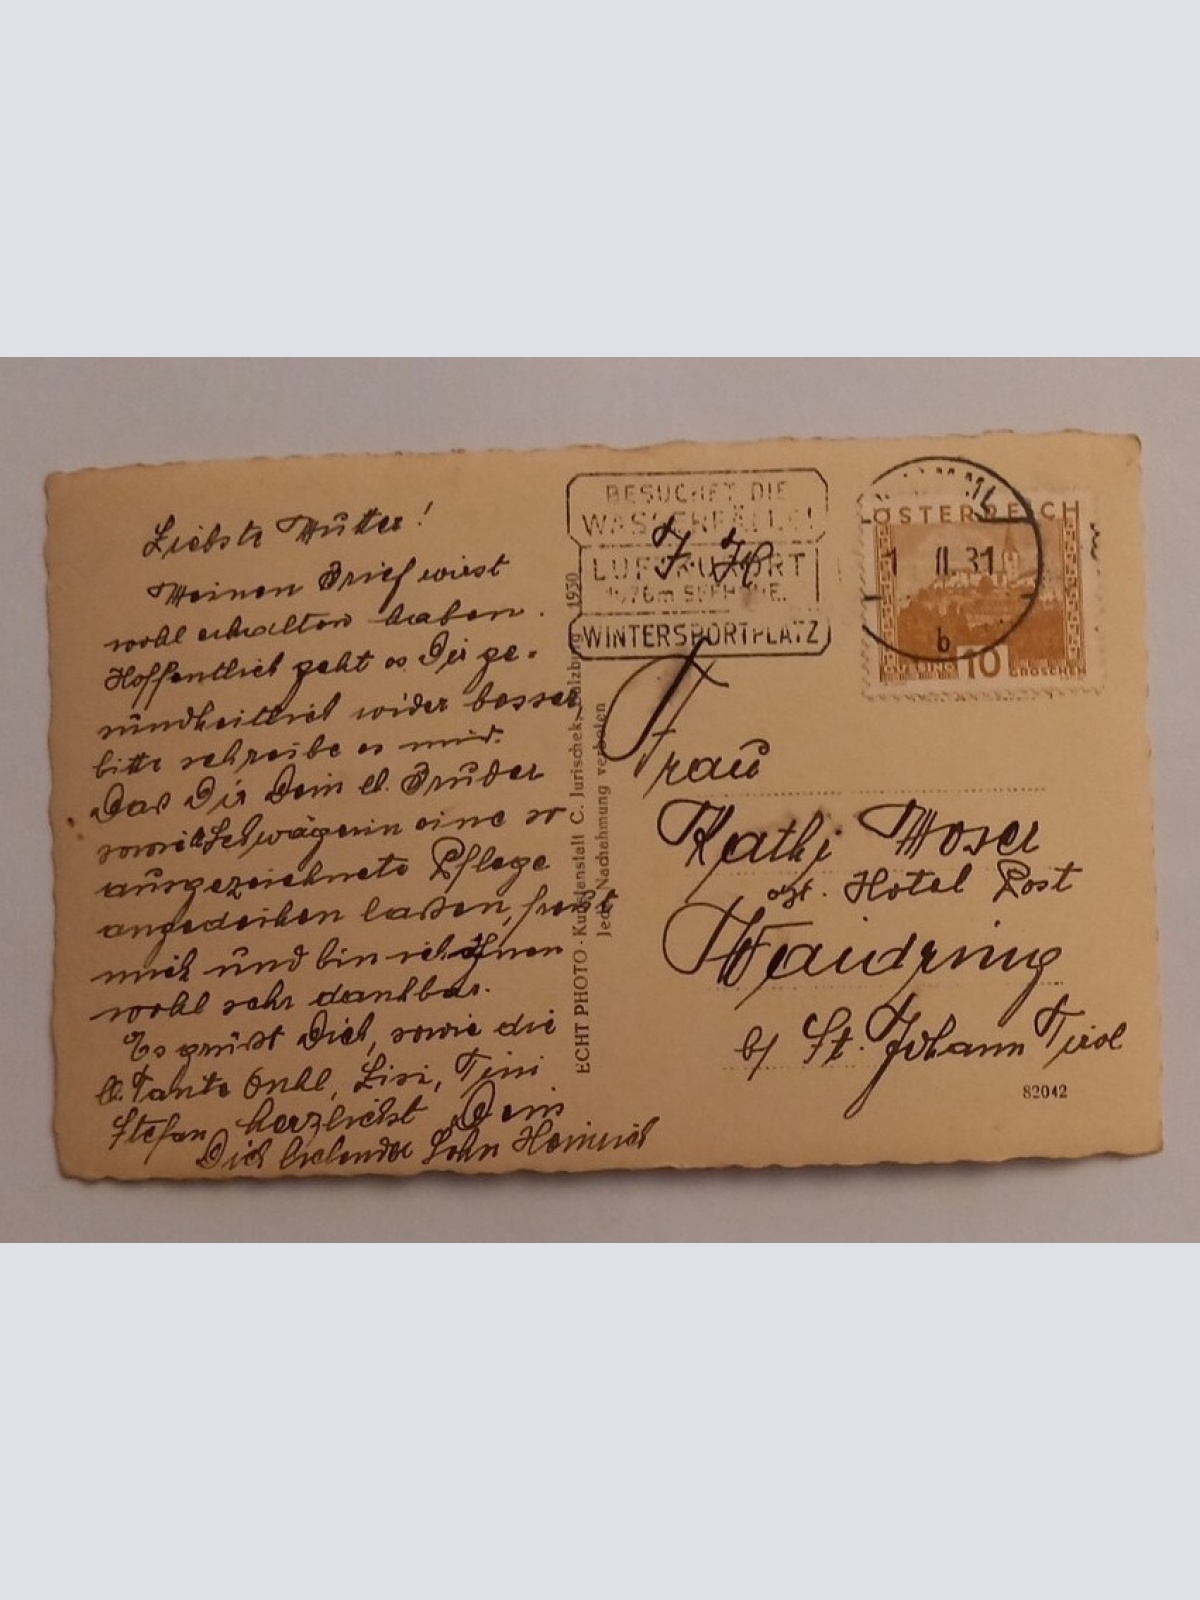 Liebste Mutter!
Meinen Brief wirst
wohl erhalten haben.
Hoffentlich geht es Dir ge-
sundheitlich wider besser
bitte schreibe es mir.
Das Dir Dein lb. Bruder
sowie Schwägerin eine so
ausgezeichnete Pflege
angedeihen laßen, freut
mich und bin ich Ihnen
wohl sehr dankbar.
Es grüßt Dich, sowie die
lb. Tante Onkl, Lisi, Tini
Stefan herzlichst Dein
Dich liebender Sohn Heinrich
ECHT PHOTO · Kunstanstalt C. Jurischek, Salzburg 1930
Jede Nachahmung verboten
BESUCHET DIE
WASSERFÄLLE!
LUFTKURORT
SEEHÖHE.
WINTERSPORTPLATZ
ÖSTERREICH
II.31
b
10
GROSCHEN
Frau
Kathi Moser
Hotel Post
Waidring
b/ St. Johann Tirol
82042